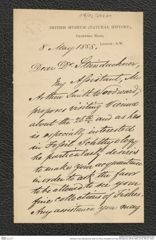 BRITISH MUSEUM (NATURAL HISTORY),
CROMWELL ROAD,
LONDON: S.W.
8 May 1888.
Dear Dr Steindachner,
My Assistant, Mr
Arthur Smith Woodward,
proposes visiting Vienna
about the 28th and as he
is especially interested
in Fossil Ichthyology
he particularly desires
to make your acquaintance
in order to ask the favor
to be allowed to see your
fine collections of fishes
Any assistance you may